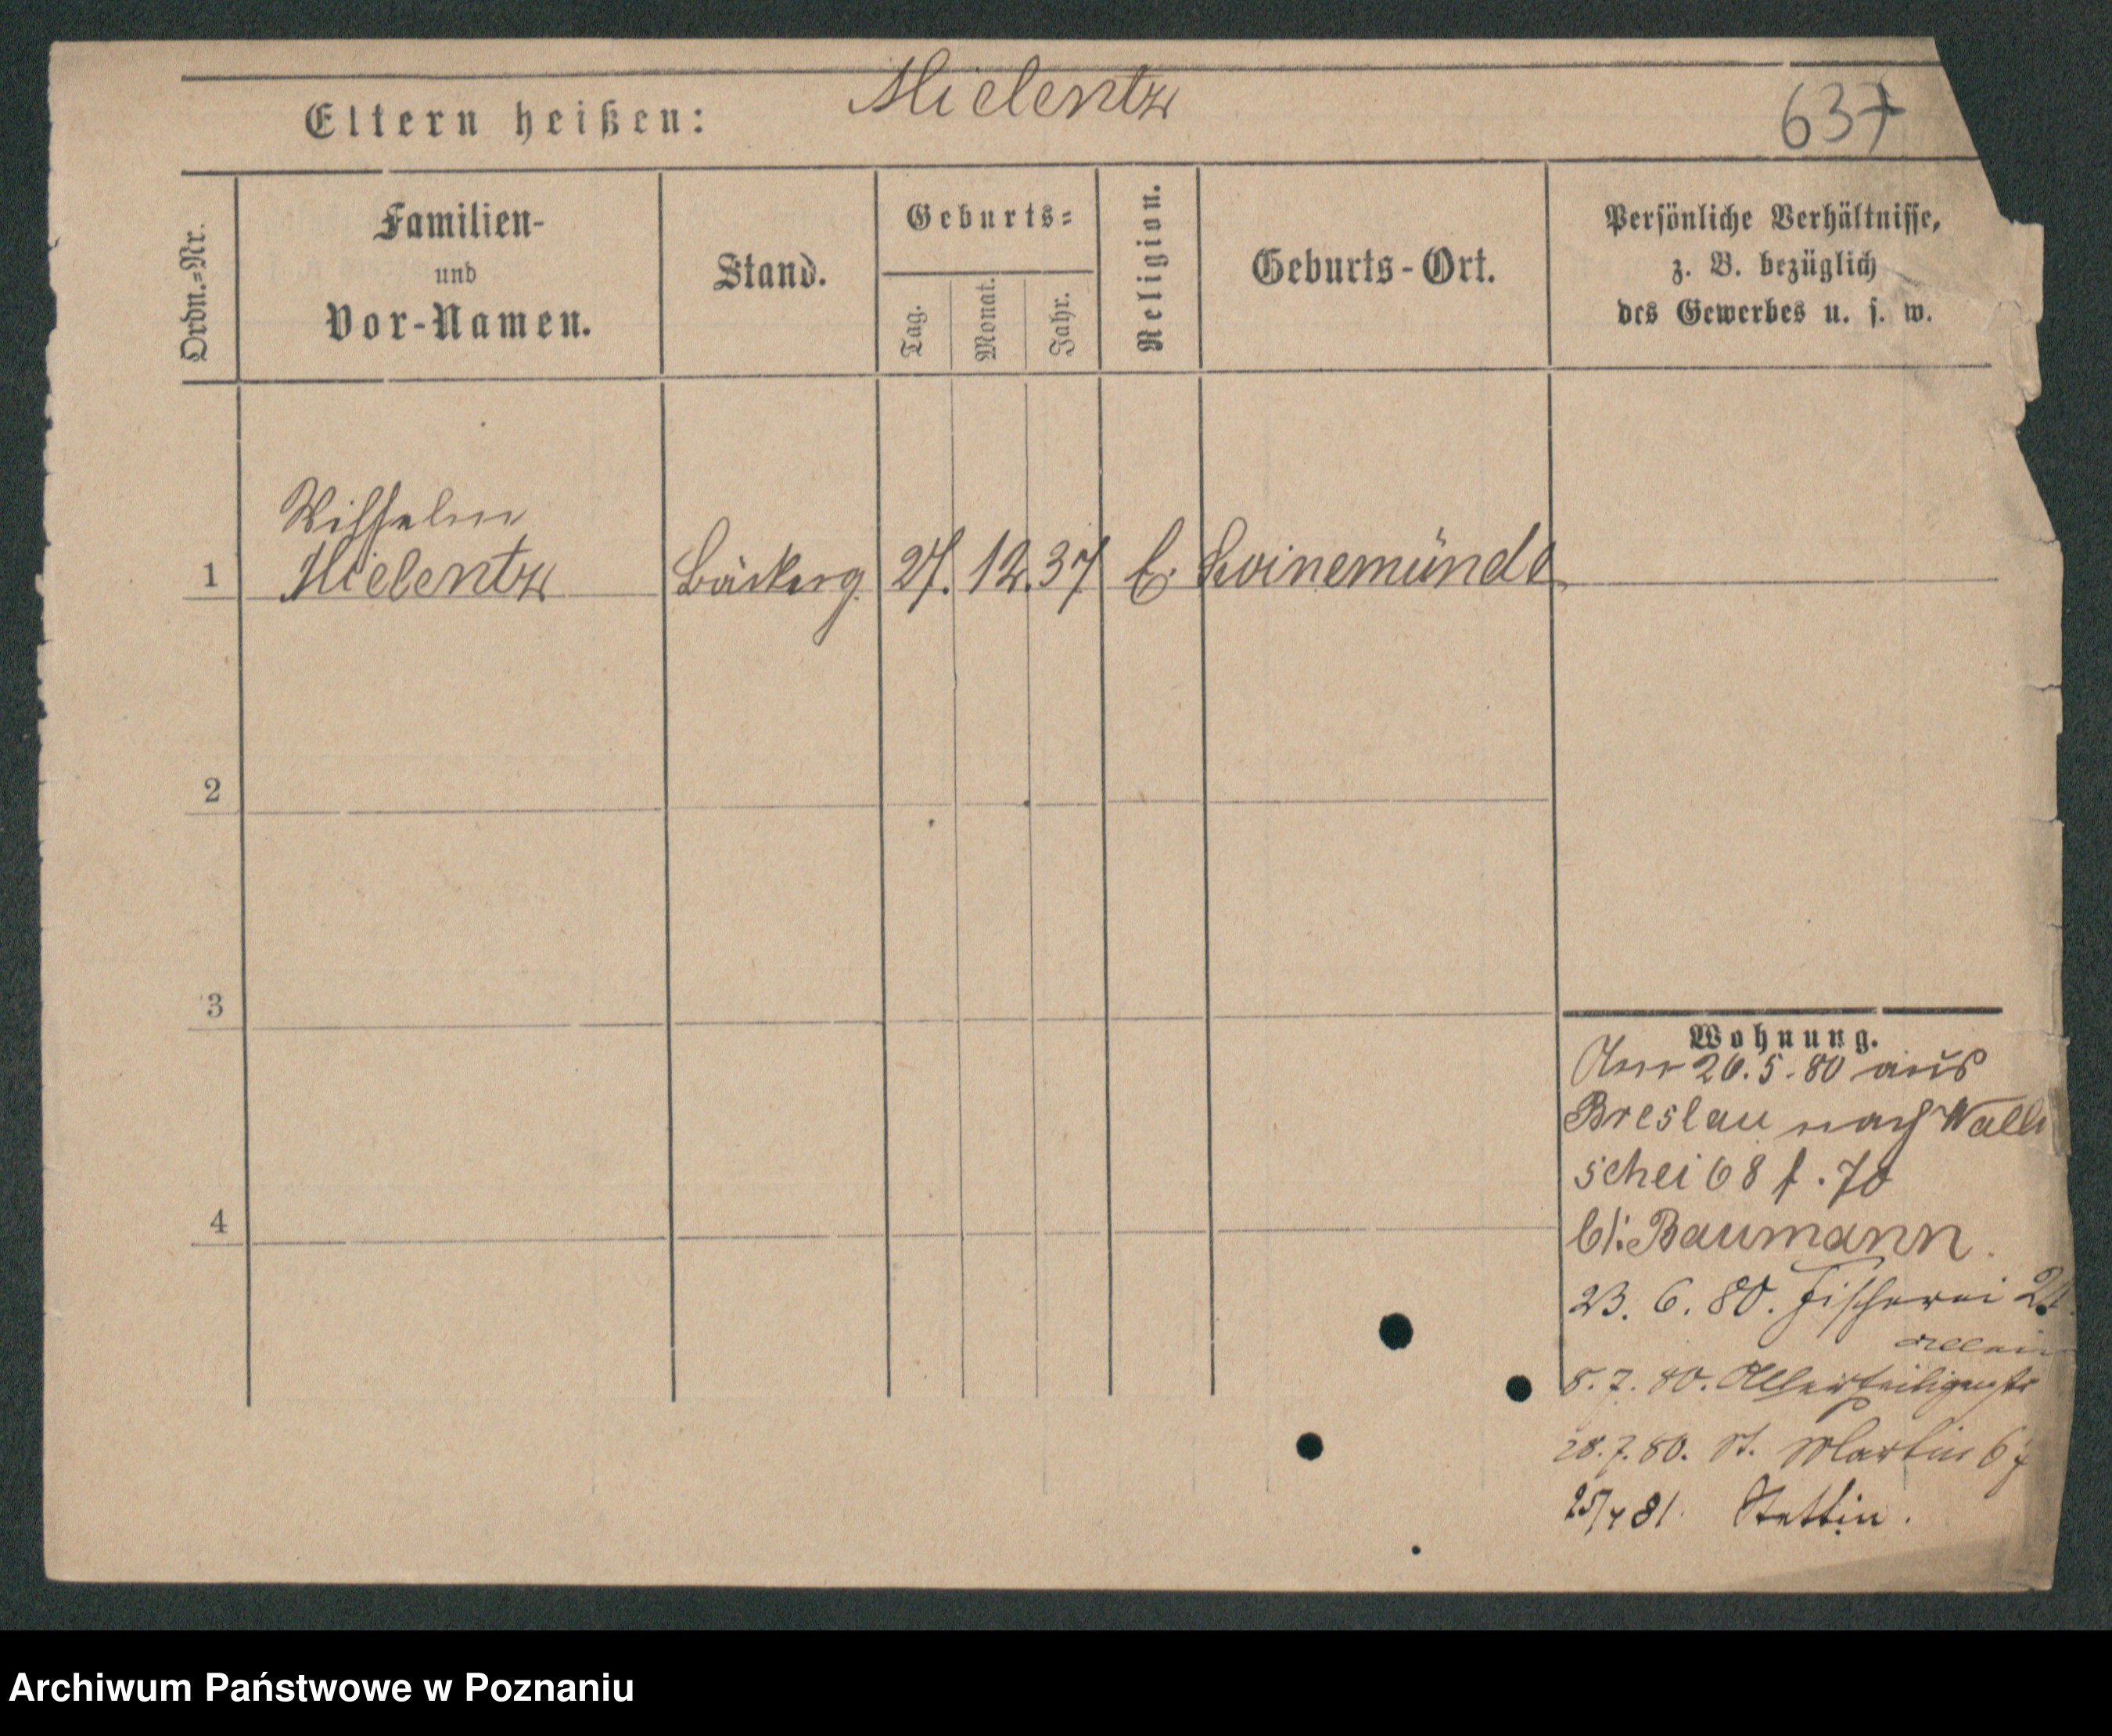 Mielentz
637
Eltern heißen:
Ordn.=Nr.
Familien-
und
Vor-Namen.
Stand.
Geburts=
Tag.
Monat.
Jahr.
Religion.
Geburts-Ort.
Persönliche Verhältnisse,
z. B. bezüglich
des Gewerbes u. s. w.
1
Wilhelm
Mielentz
Bäckerg.
27. 12. 37
Swinemünde
2
3
4
Wohnung.
26.5.80 aus
Breslau nach Walli
schei 68 f. 70
b/: Baumann.
23. 6. 80. Fischerei
8. 7. 80. Allerheiligenstr
28. 7. 80. St. Martin 67
25/4 81. Stettin.
Archiwum Państwowe w Poznaniu